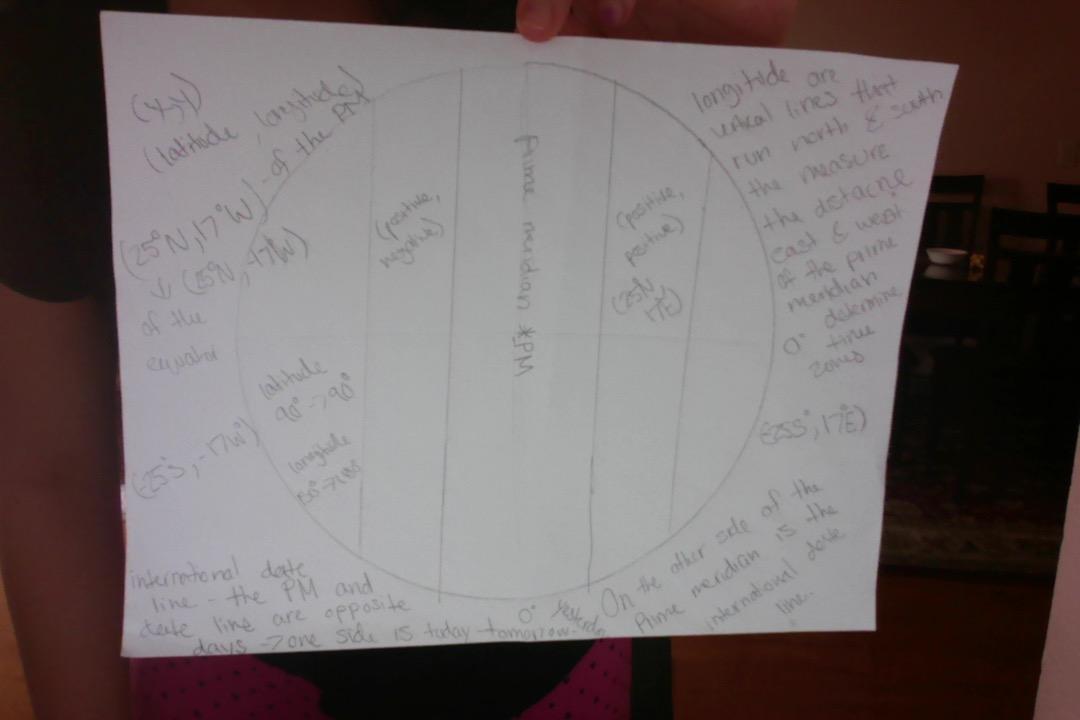 (x,y)
(latitude, longitude)
(25°N, 17°W) - of the PM
↓ (25N, -17W)
of the
equator
(positive,
negative)
Prime meridian *PM
(positive,
positive)
(25N
17E)
longitude are
vertical lines that
run north & south
the measure
the distacne
east & west
of the prime
meridian
0° determine
time
zones
latitude
90° -> 90°
longitude
(-25°S, -17W°)
(-25S°, 17°E)
international date
line - the PM and
date line are opposite
days -> one side is today - tomorrow -
0° yesterday
On the other side of the
Prime meridian is the
international date
line.